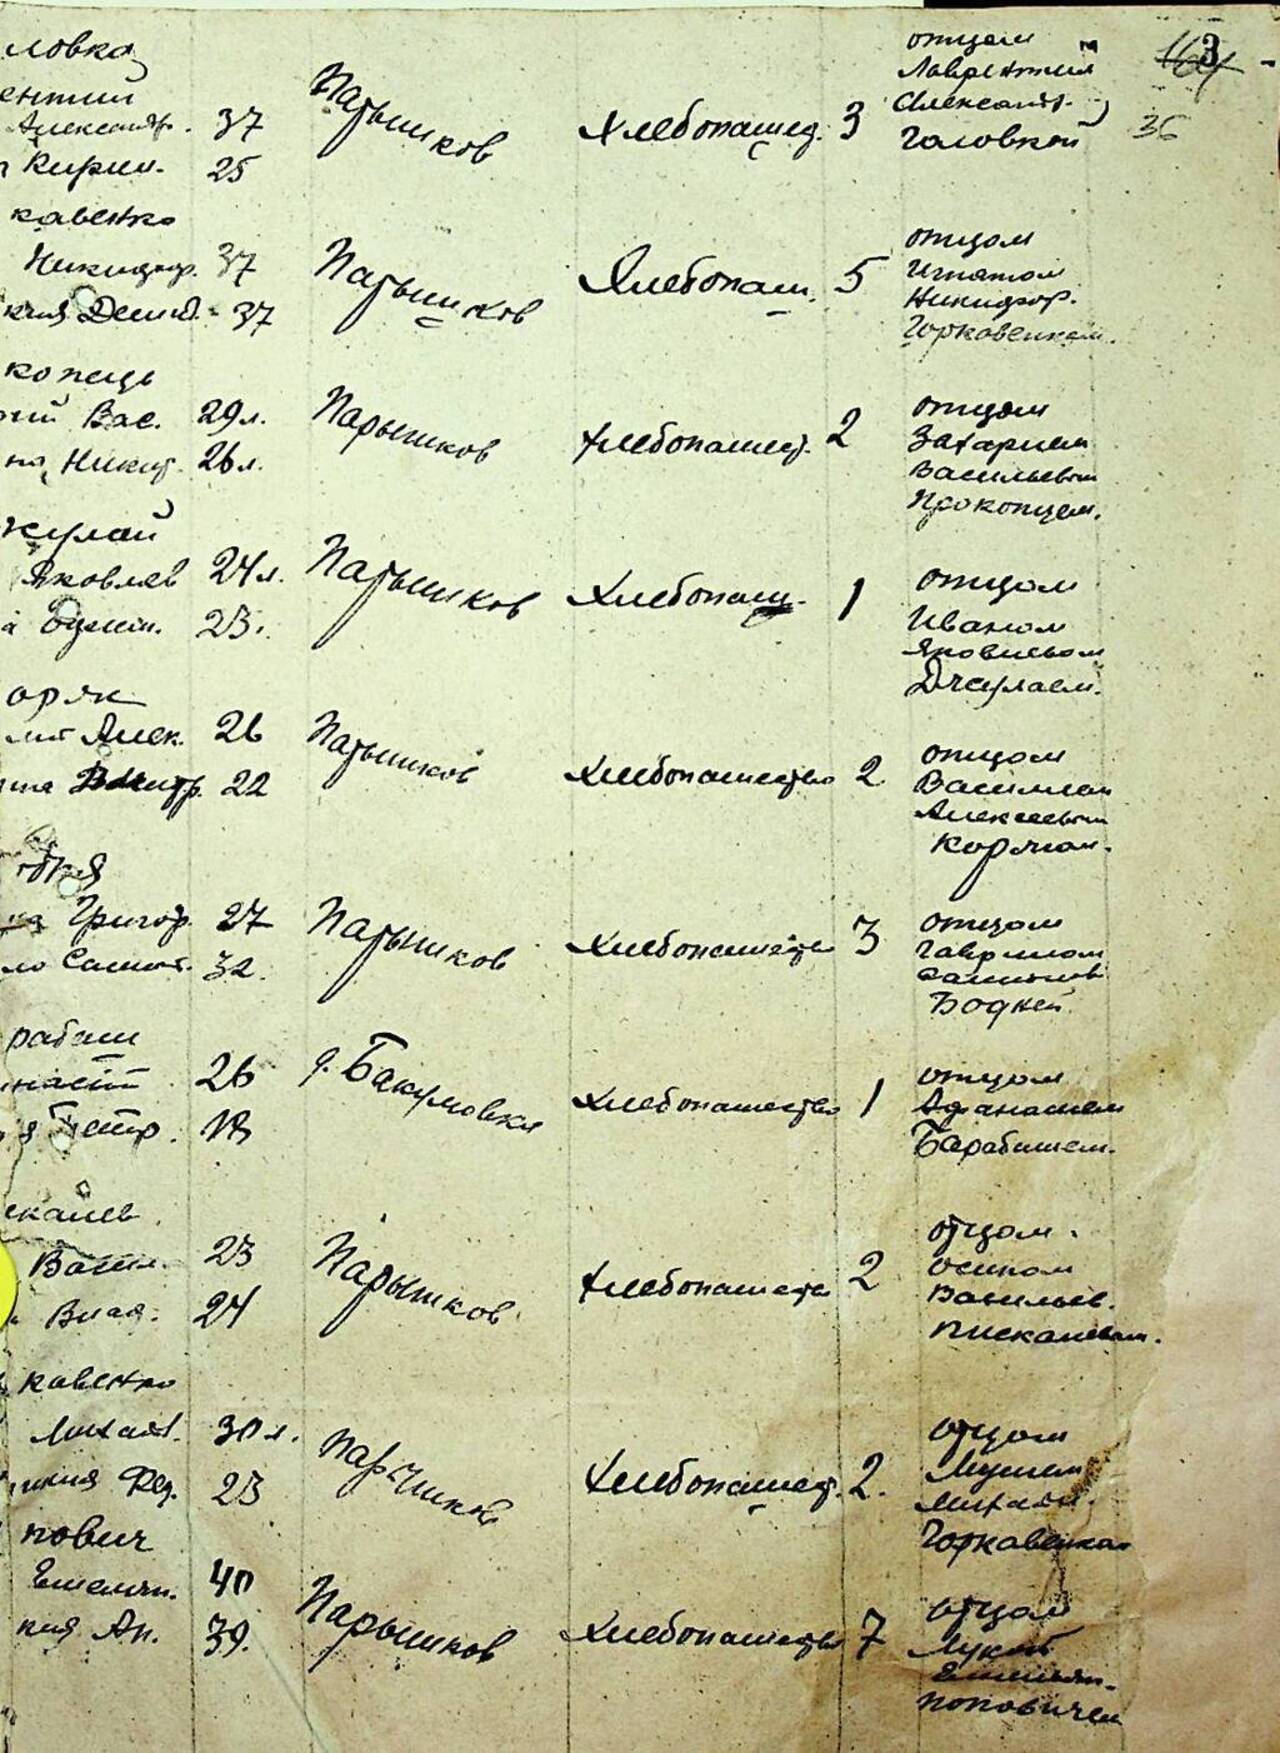 3
36
ловка
ентий
Александр. 37 Парышков Хлебопашес. 3 отцом Лаврентием Александр. Головкой
Кирил. 25
кавенко
Никифор. 37 Парышков Хлебопаш. 5 отцом Игнатом Никифор. Горкавенком.
Демид. 37
копець
Вас. 29 л. Парышков Хлебопашест. 2 отцом Захарием Васильевым Прокопцем.
на Никит. 26 л.
жулай
Яковлев 24 л. Парышков Хлебопаш. 1 отцом Иваном Яковлевом Джулаем.
23.
оряк
Алек. 26 Парышков Хлебопашество 2 отцом Василием Алексеевым Коряком.
22
дня
Григор. 27 Парышков Хлебопашество 3 отцом Гаврилом Бодней
32.
рабаш
26 д. Бакумовка Хлебопашество 1 отцом Афанасием Барабашем.
Петр. 18
скалев
Васил. 23 Парышков Хлебопашество 2 отцом Осипом Васильев. Пискалевым.
Влас. 24
кавенко
Михайл. 30 л. Парышков Хлебопашест. 2. отцом Михайл. Горкавенком
Фед. 23
пович
Емельян. 40 Парышков Хлебопашество 7 отцом Лукой Емельян. Поповичем
кия Ан. 39.